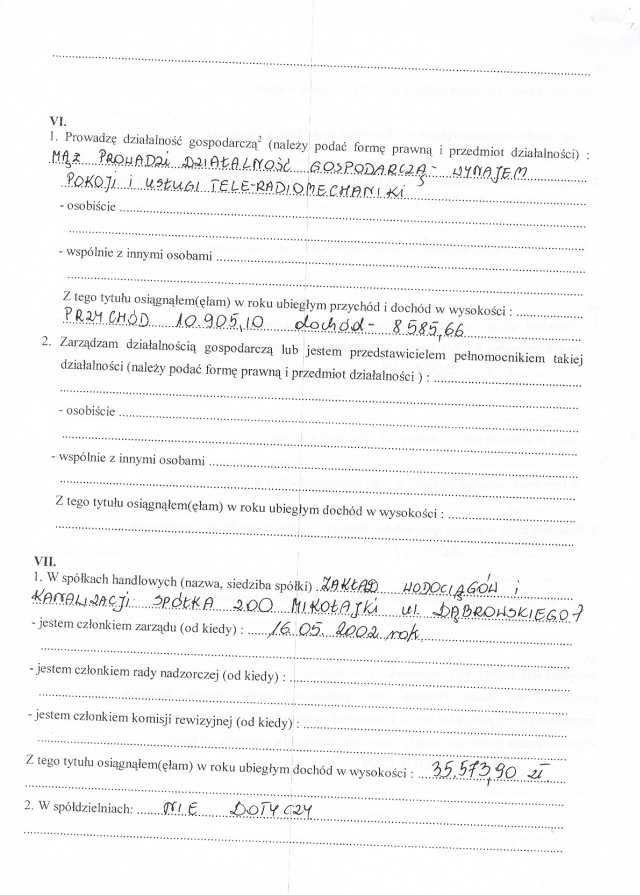 VI.
1. Prowadzę działalność gospodarczą² (należy podać formę prawną i przedmiot działalności) :
MĄŻ PROWADZI DZIAŁALNOŚĆ GOSPODARCZĄ - WYNAJEM
POKOJI i USŁUGI TELE-RADIOMECHANIKI
- osobiście
- wspólnie z innymi osobami
Z tego tytułu osiągnąłem(ęłam) w roku ubiegłym przychód i dochód w wysokości :
PRZYCHÓD 10.905,10 dochód - 8585,66
2. Zarządzam działalnością gospodarczą lub jestem przedstawicielem pełnomocnikiem takiej
działalności (należy podać formę prawną i przedmiot działalności ) :
- osobiście
- wspólnie z innymi osobami
Z tego tytułu osiągnąłem(ęłam) w roku ubiegłym dochód w wysokości :
VII.
1. W spółkach handlowych (nazwa, siedziba spółki) ZAKŁAD WODOCIĄGÓW i
KANALIZACJI SPÓŁKA ZOO MIKOŁAJKI ul. DĄBROWSKIEGO 7
- jestem członkiem zarządu (od kiedy) : 16.05.2002 rok
- jestem członkiem rady nadzorczej (od kiedy) :
- jestem członkiem komisji rewizyjnej (od kiedy) :
Z tego tytułu osiągnąłem(ęłam) w roku ubiegłym dochód w wysokości : 35.573,90 zł.
2. W spółdzielniach: NIE DOTYCZY